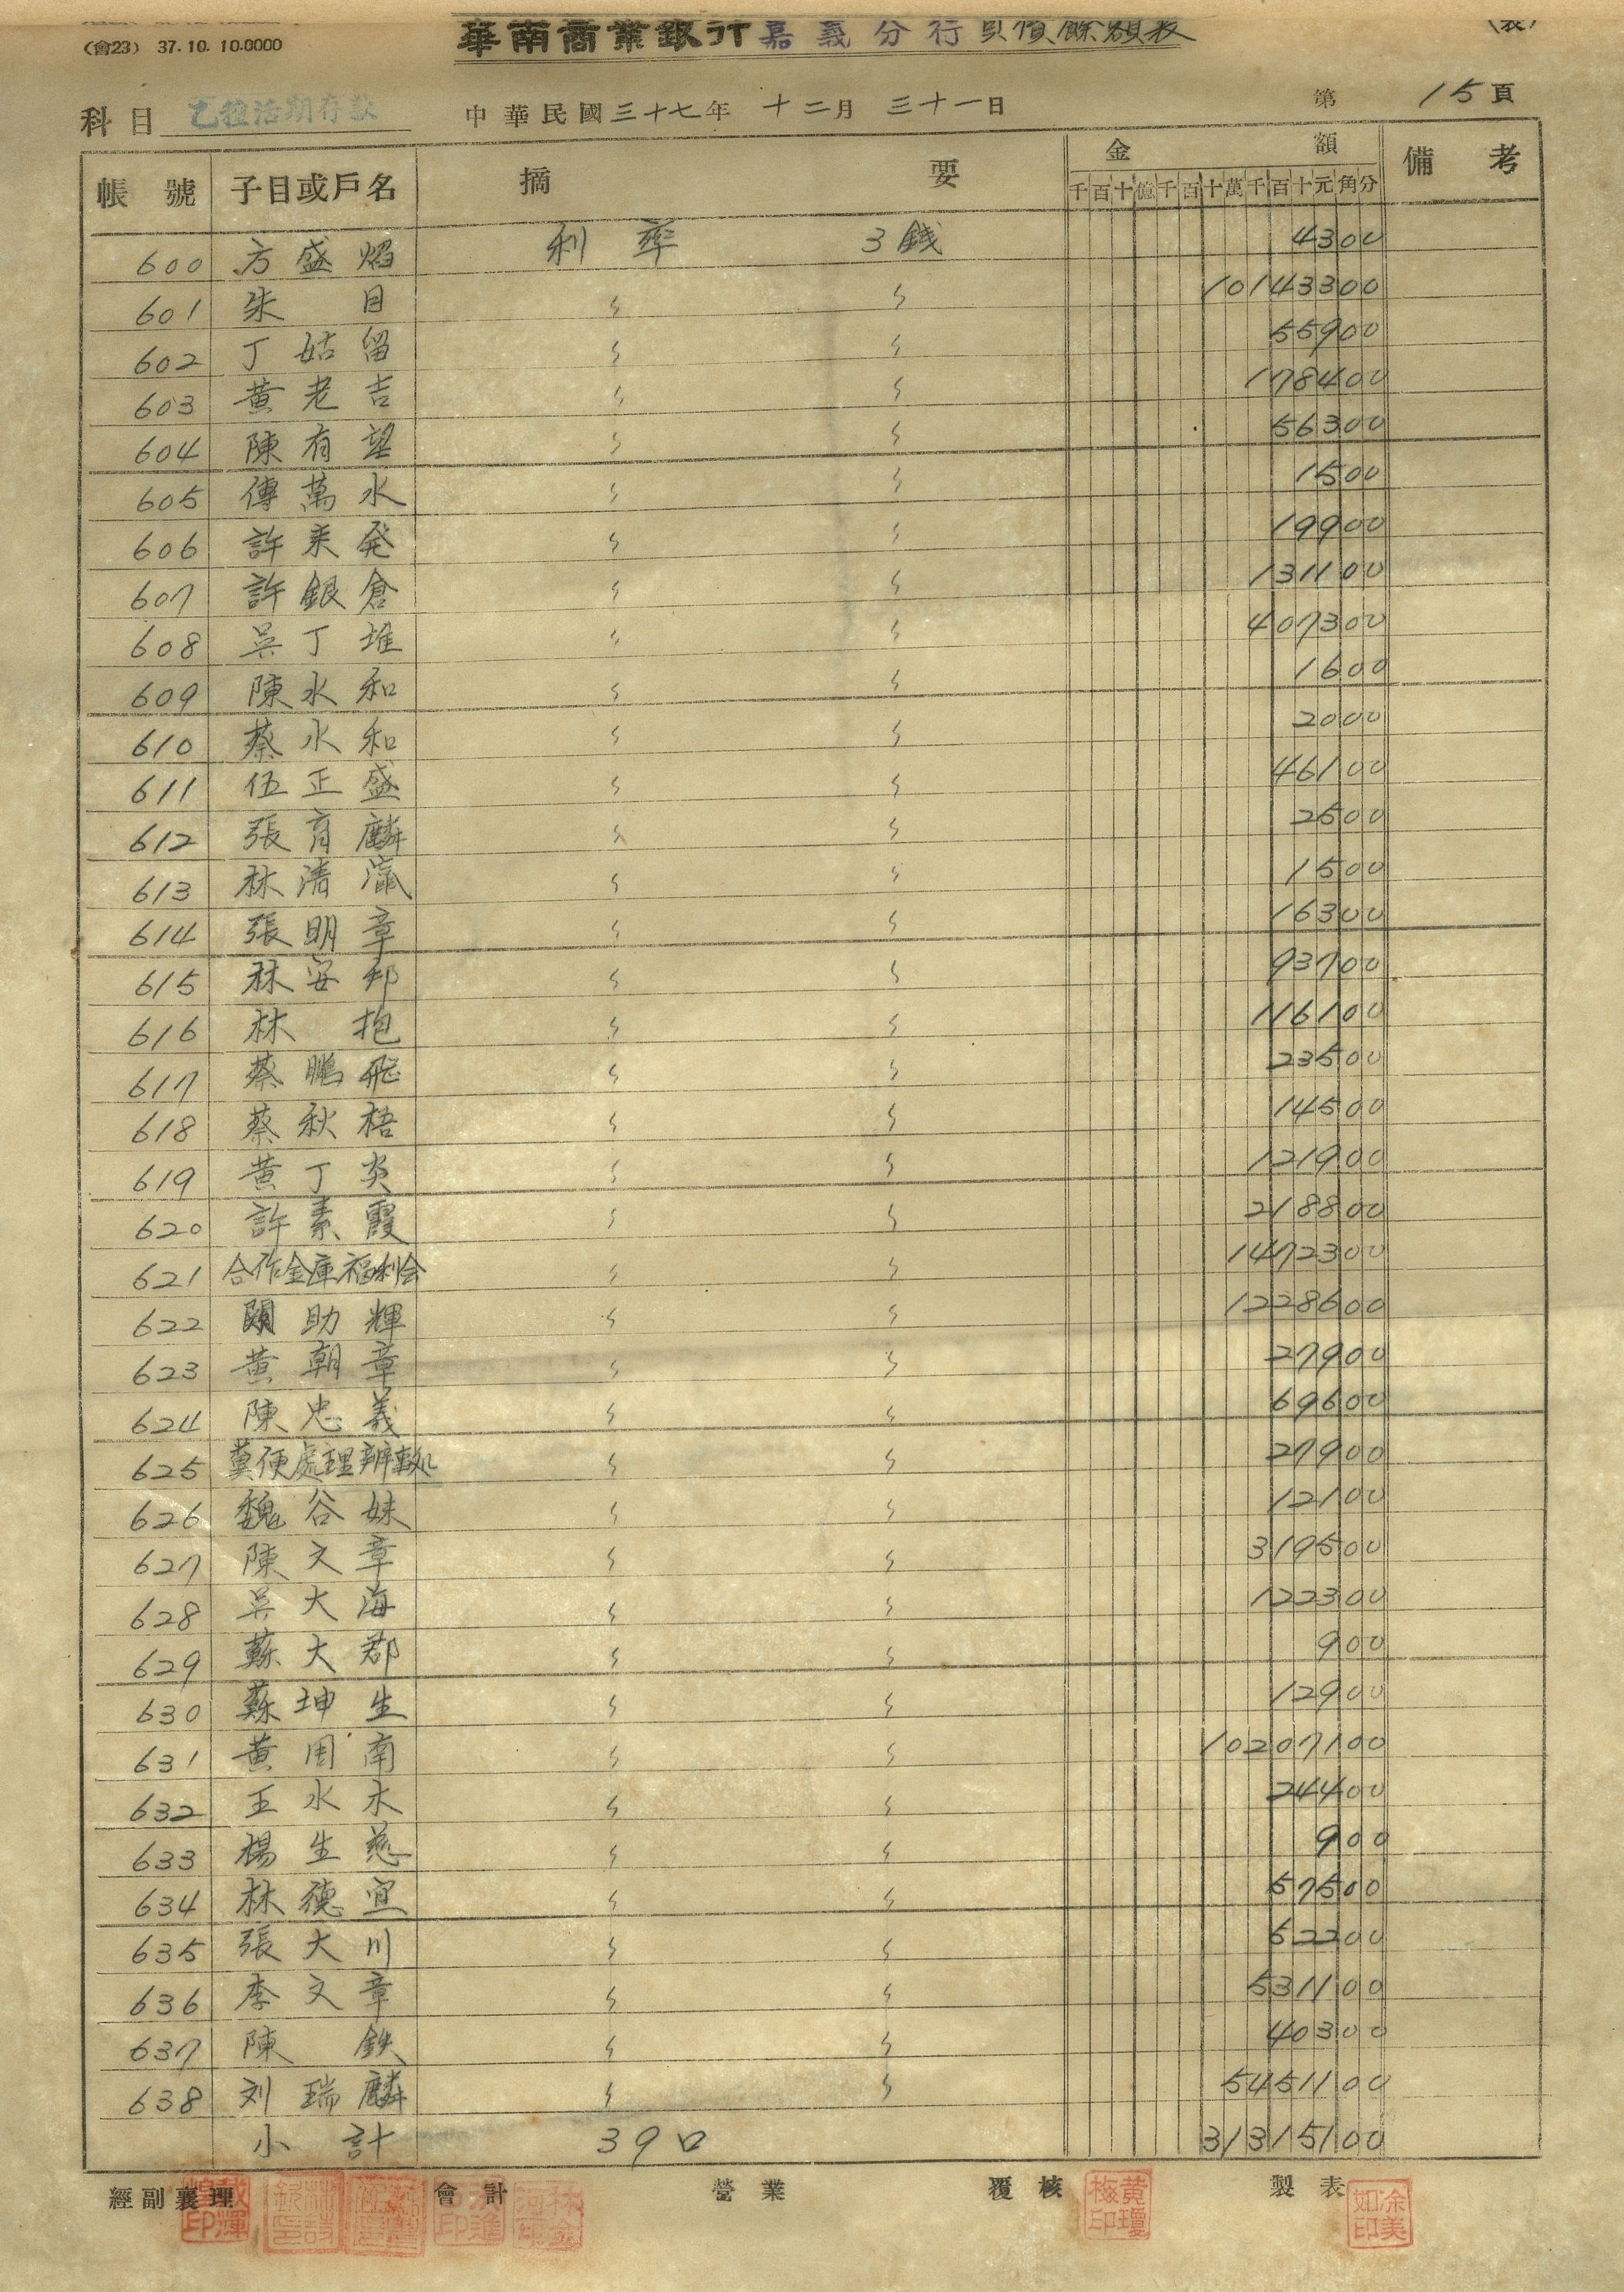 (會23) 37.10.10.0000
華南商業銀行嘉義分行負債餘額表
(表)
科目 乙種活期存款 中華民國三十七年 十二月 三十一日 第 15頁
帳號 子目或戶名 摘要 金額 備考
千百十億千百十萬千百十元角分
600 方盛焰 利率 3錢 4300
601 朱目 〃 〃 10143300
602 丁姑留 〃 〃 55900
603 黃老吉 〃 〃 178400
604 陳有望 〃 〃 56300
605 傳萬水 〃 〃 1500
606 許来発 〃 〃 19900
607 許銀倉 〃 〃 131100
608 吳丁堆 〃 〃 407300
609 陳水和 〃 〃 1600
610 蔡水和 〃 〃 2000
611 伍正盛 〃 〃 46100
612 張育麟 〃 〃 2500
613 林清瀛 〃 〃 1500
614 張明章 〃 〃 16300
615 林安邦 〃 〃 93700
616 林抱 〃 〃 116100
617 蔡鵬飛 〃 〃 23500
618 蔡秋梧 〃 〃 14500
619 黃丁炎 〃 〃 121900
620 許素霞 〃 〃 218800
621 合作金庫福利会 〃 〃 1472300
622 顏助輝 〃 〃 1228600
623 黃朝章 〃 〃 27900
624 陳忠義 〃 〃 69600
625 糞便處理辨事処 〃 〃 27900
626 魏谷妹 〃 〃 12100
627 陳文章 〃 〃 319500
628 吳大海 〃 〃 122300
629 蘇大郡 〃 〃 900
630 蘇坤生 〃 〃 12900
631 黃周南 〃 〃 10207100
632 王水木 〃 〃 24400
633 楊生慈 〃 〃 900
634 林德宜 〃 〃 57500
635 張大川 〃 〃 62200
636 李文章 〃 〃 531100
637 陳鉄 〃 〃 40300
638 刘瑞麟 〃 〃 5451100
小計 39口 31315100
經副襄理 會計 營業 覆核 黃瓊梅印 製表 涂美如印